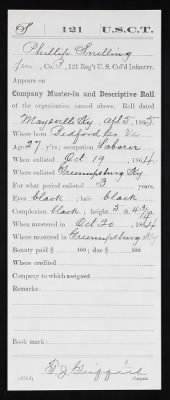 S 121 U.S.C.T.
Phillip Snelling
Co. B, 121 Reg't U. S. Col'd Infantry.
Appears on
Company Muster-in and Descriptive Roll
of the organization named above. Roll dated
Maysville Ky, Apl 5, 1865
Where born Bedford Co. Va
Age 27 y'rs; occupation Laborer
When enlisted Oct 19, 1864
Where enlisted Greenupsburg Ky
For what period enlisted 3 years.
Eyes black; hair black
Complexion black; height 5 ft. 4 in.
When mustered in Oct 20, 1864
Where mustered in Greenupsburg Ky
Bounty paid $ 100; due $ 100
Where credited
Company to which assigned
Remarks:
Book mark:
Copyist.